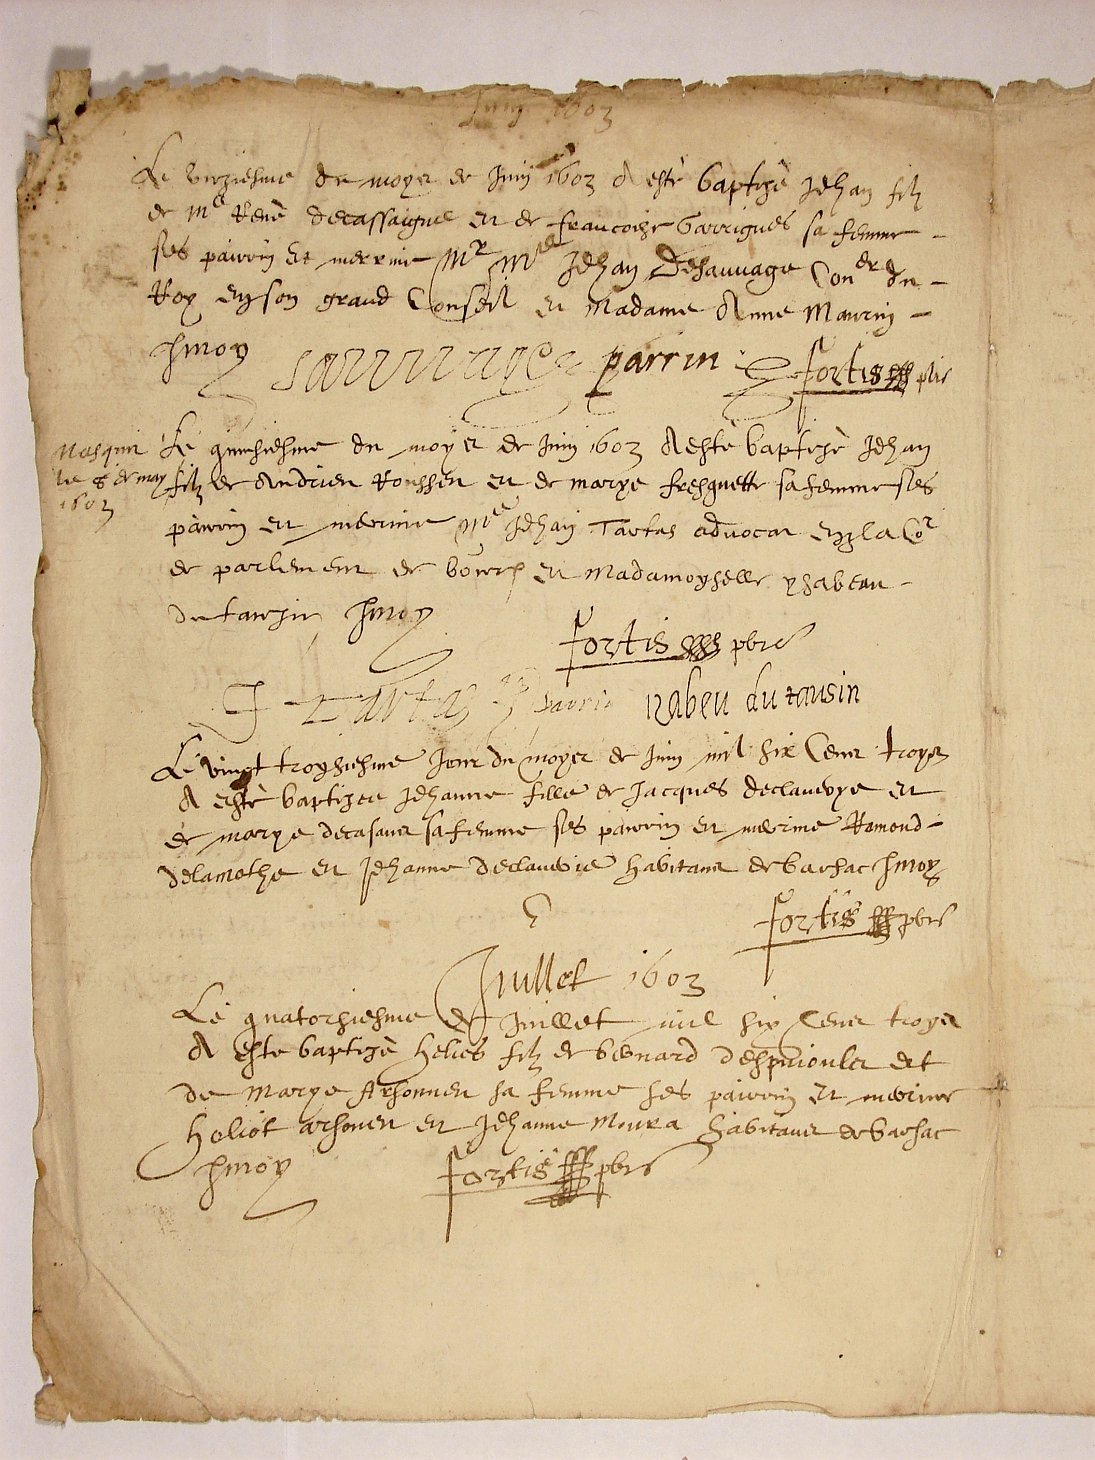 Juin 1603
Le unziesme du moys de Juin 1603 A esté baptizé Jehan filz
de Me René decassaigne et de francoize Garrigues sa femme
ses pairrin et merrine Mr Me Jehan Desauvage Coner du
Roy en son grand Conseil et Madame Anne Maurin
p̃nt moy
sauvage parrin Fortis pbre
Nasquit
le 8 de may
1603
Le quinsiesme du moys de Juin 1603 A esté baptizé Jehan
filz de Andrieu Roussen et de marye fresquette sa femme ses
pairrin et merrine Me Jehan Tartas advocat en la Cor
de parlement de bourd et Madamoyselle ysabeau
du tauzin p̃nt moy
Fortis pbre
J tartas parrin izabeu du tausin
Le vingt troysiesme Jour du moys de Juin mil six Cens troys
A esté baptizee Jehanne fille de Jacques declaverye et
de marye decasaus sa femme ses pairrin et merrine Ramond
delamothe et Jehanne declaverie habitans de barsac p̃nt moy
Fortis pbre
Juillet 1603
Le quatorsiesme de Juillet mil six Cens troys
A esté baptizé Helies filz de bernard despuioulet et
de Marye Arsonneu sa femme ses pairrin et merrine
Heliot arsoneu et Jehanne Moura habitans de barsac
p̃nt moy Fortis pbre